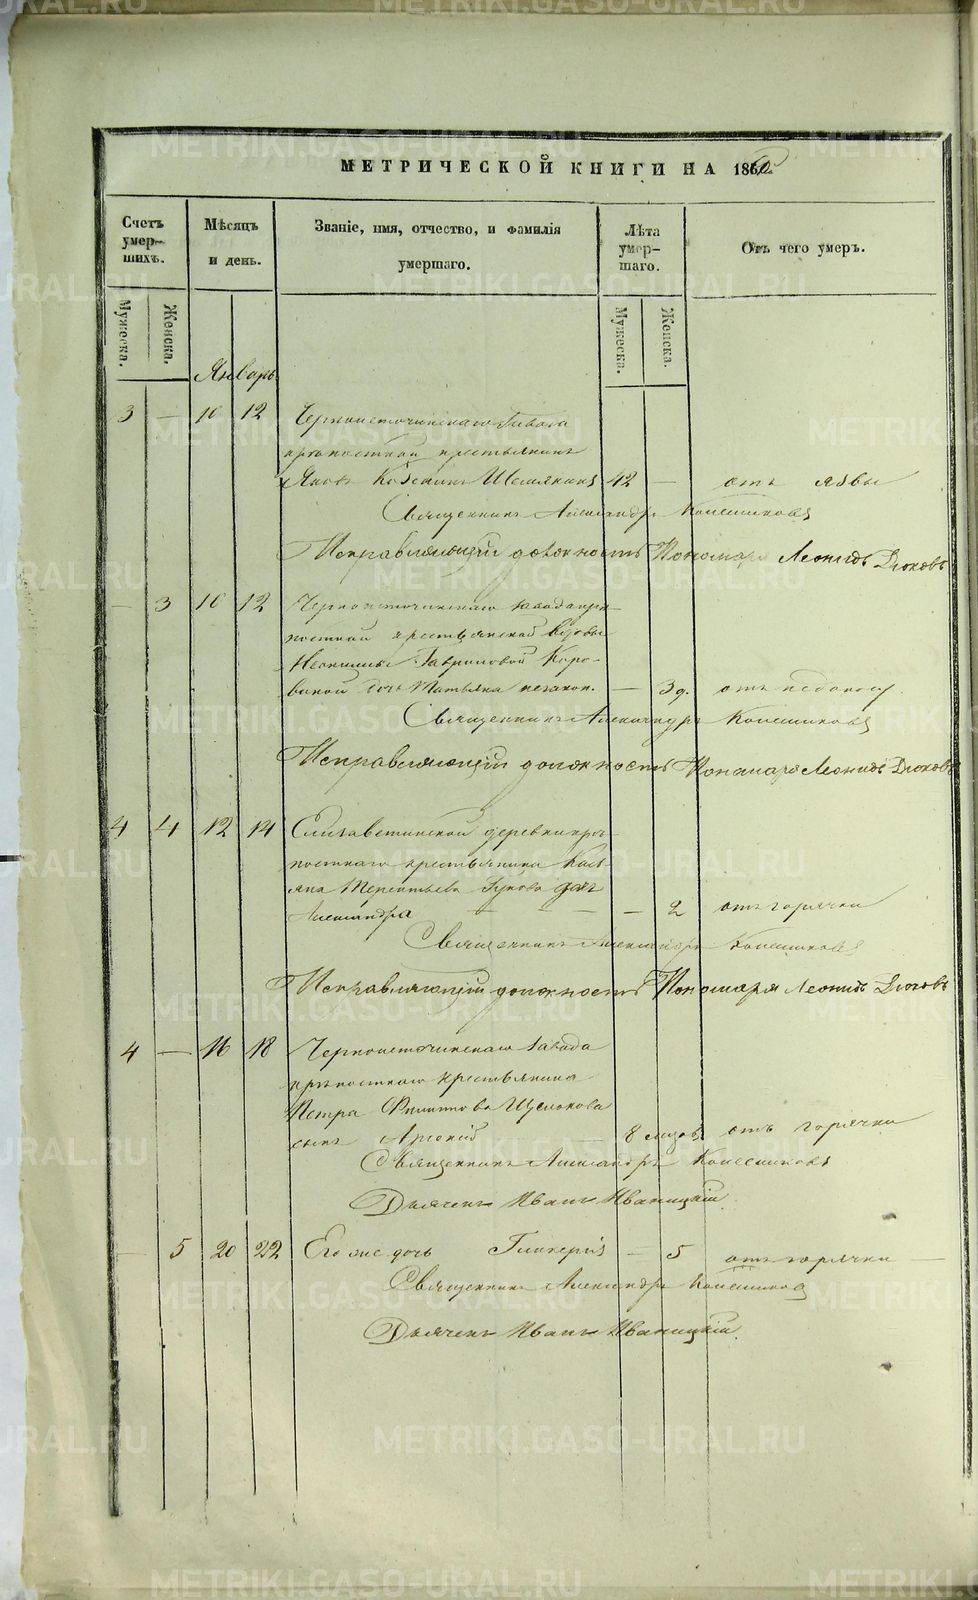 МЕТРИЧЕСКОЙ КНИГИ НА 1860
Счетъ умершихъ.
Мѣсяцъ и день.
Званіе, имя, отчество, и фамилія умершаго.
Лѣта умершаго.
Отъ чего умеръ.
Мужеска.
Женска.
Мужеска.
Женска.
Январь
3 — 10 12 Черноисточинскаго завода
крѣпостной крестьянинъ
Яковъ Козминъ 42 — отъ язвы
Священникъ Александръ Колесниковъ
Исправляющій должность Пономаря Леонидъ Дюковъ
— 3 10 12 Черноисточинскаго завода крѣ-
постной крестьянской вдовы
Неонилы Гавриловой Коро-
виной дочь Татьяна незакон. — 3 д. отъ
Священникъ Александръ Колесниковъ
Исправляющій должность Пономаря Леонидъ Дюковъ
4 4 12 14 Елизаветинской деревни крѣ-
постнаго крестьянина
Терентьева дочь
Александра — — — — 2 отъ горячки
Священникъ Александръ Колесниковъ
Исправляющій должность Пономаря Леонидъ Дюковъ
4 — 16 18 Черноисточинскаго завода
крѣпостнаго крестьянина
Петра Филиппова Щелокова
сынъ 8 отъ горячки
Священникъ Александръ Колесниковъ
Дьячекъ Иванъ Иваницкій
— 5 20 22 Его же дочь Гликерія — 5 отъ горячки —
Священникъ Александръ Колесниковъ
Дьячекъ Иванъ Иваницкій.
METRIKI.GASO-URAL.RU